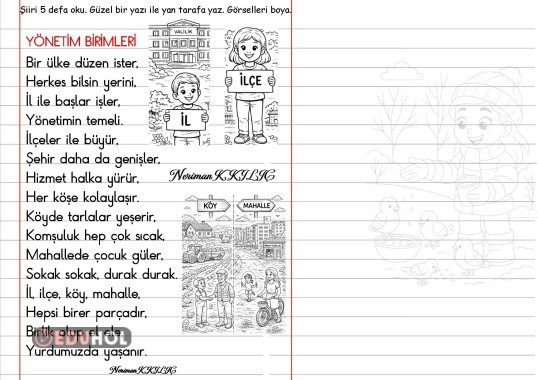 Şiiri 5 defa oku. Güzel bir yazı ile yan tarafa yaz. Görselleri boya.
YÖNETİM BİRİMLERİ
Bir ülke düzen ister,
Herkes bilsin yerini,
İl ile başlar işler,
Yönetimin temeli.
İlçeler ile büyür,
Şehir daha da genişler,
Hizmet halka yürür,
Her köşe kolaylaşır.
Köyde tarlalar yeşerir,
Komşuluk hep çok sıcak,
Mahallede çocuk güler,
Sokak sokak, durak durak.
İl, ilçe, köy, mahalle,
Hepsi birer parçadır,
Birlik olup el ele,
Yurdumuzda yaşanır.
Neriman
VALİLİK
İL
İLÇE
Neriman
KÖY
MAHALLE
EDUHOL